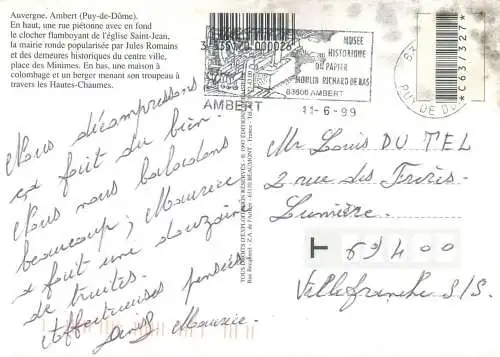 Auvergne. Ambert (Puy-de-Dôme).
En haut, une rue piétonne avec en fond
le clocher flamboyant de l'église Saint-Jean,
la mairie ronde popularisée par Jules Romains
et des demeures historiques du centre ville,
place des Minimes. En bas, une maison à
colombage et un berger menant son troupeau à
travers les Hautes-Chaumes.
Nous décompressons
ça fait du bien.
Nous nous baladons
beaucoup, Maurice
a fait une douzaine
de truites.
Affectueuses pensées
Maurice.
TOUS DROITS D'EXPLOITATION RÉSERVÉS - © 1997 ÉDITIONS
MUSEE
HISTORIQUE
DU PAPIER
MOULIN RICHARD DE BAS
63600 AMBERT
AMBERT
11-6-99
63
PUY DE D
*C637327*
Mr Louis DUTEL
2 rue des Frères
Lumière.
T 69400
Villefranche S/S.